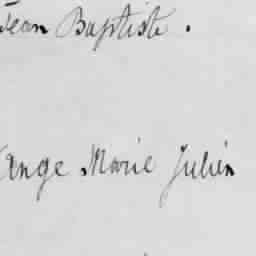 Jean Baptiste.
ange Marie Julien